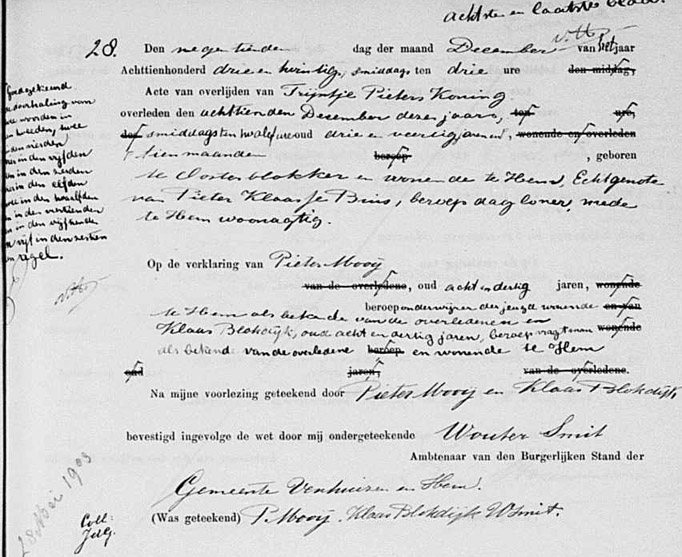 achtste en laatste blad.
28. Den negentienden dag der maand December van het jaar
Achttienhonderd drie en twintig, smiddags ten drie ure den middag,
Acte van overlijden van Trijntje Pieters Koning
overleden den achttienden December dezer jaars, tot ure,
tot smiddags ten twalef ure oud drie en veertig jaren en, wonende en overleden
tien maanden beroep , geboren
te Oosterblokker en wonende te Hem, Echtgenote
van Pieter Klaasje Bius, beroep dagloner, mede
te Hem woonagtig.
Op de verklaring van Pieter Mooij
van de overledene, oud acht en dertig jaren, wonende
beroep onderwijzer der jeugd wonende en van
te Hem als bekende van de overledenen en
Klaas Blokdijk, oud acht en dertig jaren, beroep wonende
als bekend van de overledene beroep en wonende te Hem
oud jaren, van de overledene.
Na mijne voorlezing geteekend door Pieter Mooij en Klaas Blokdijk
bevestigd ingevolge de wet door mij ondergeteekende Wouter Smit
Ambtenaar van den Burgerlijken Stand der
Gemeente Venhuizen en Hem.
(Was geteekend) P. Mooij. Klaas Blokdijk W Smit.
Goedgekeurd
de doorhaling van
woorden in
den vierden
in den vijfden
in den zesden
in den elfden
in den twaalfden
in den veertienden
in den vijftienden
vijf in den zesden
regel.
28 Mei 1903
Coll: